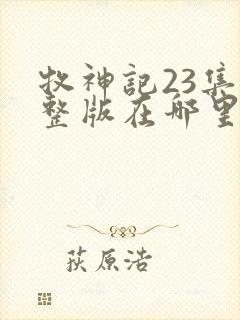 牧神記23集
整版在哪里
荻原浩